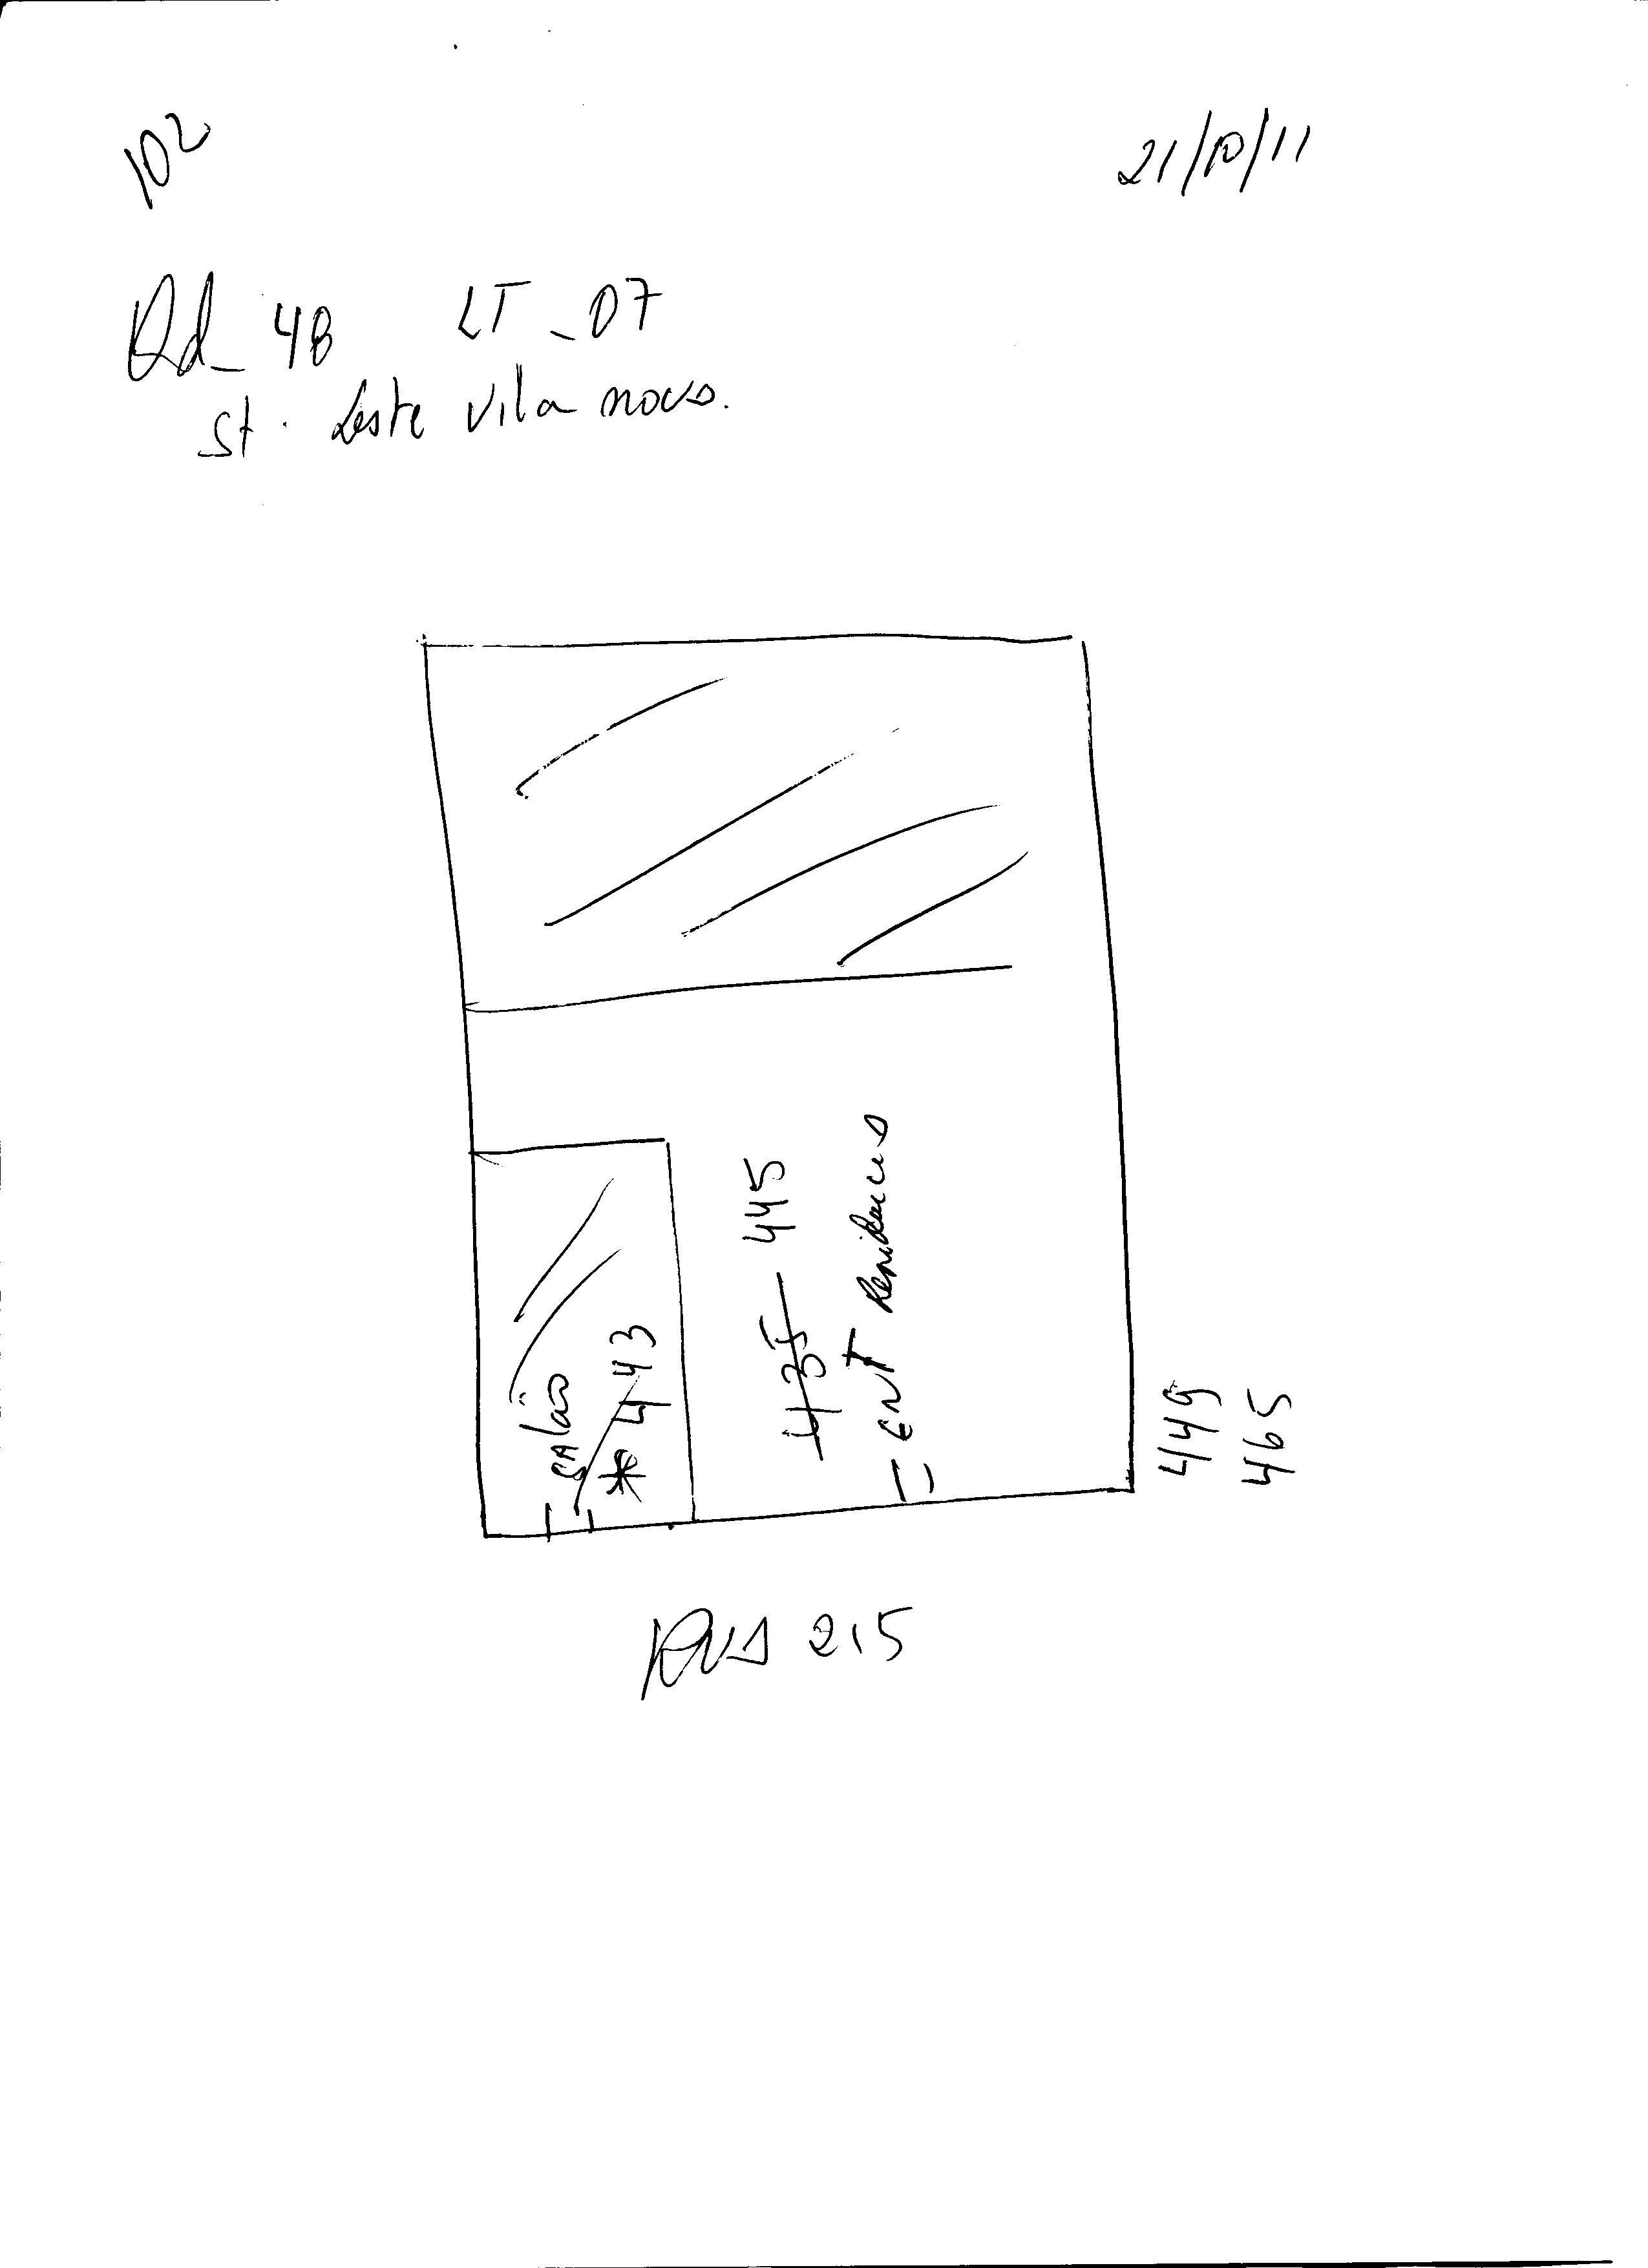 102
21/10/11
Qd_ 4B LT_07
St. Leste Vila nova.
salão
* 443
435 445
ENT Residencia
449
465
RUA 215